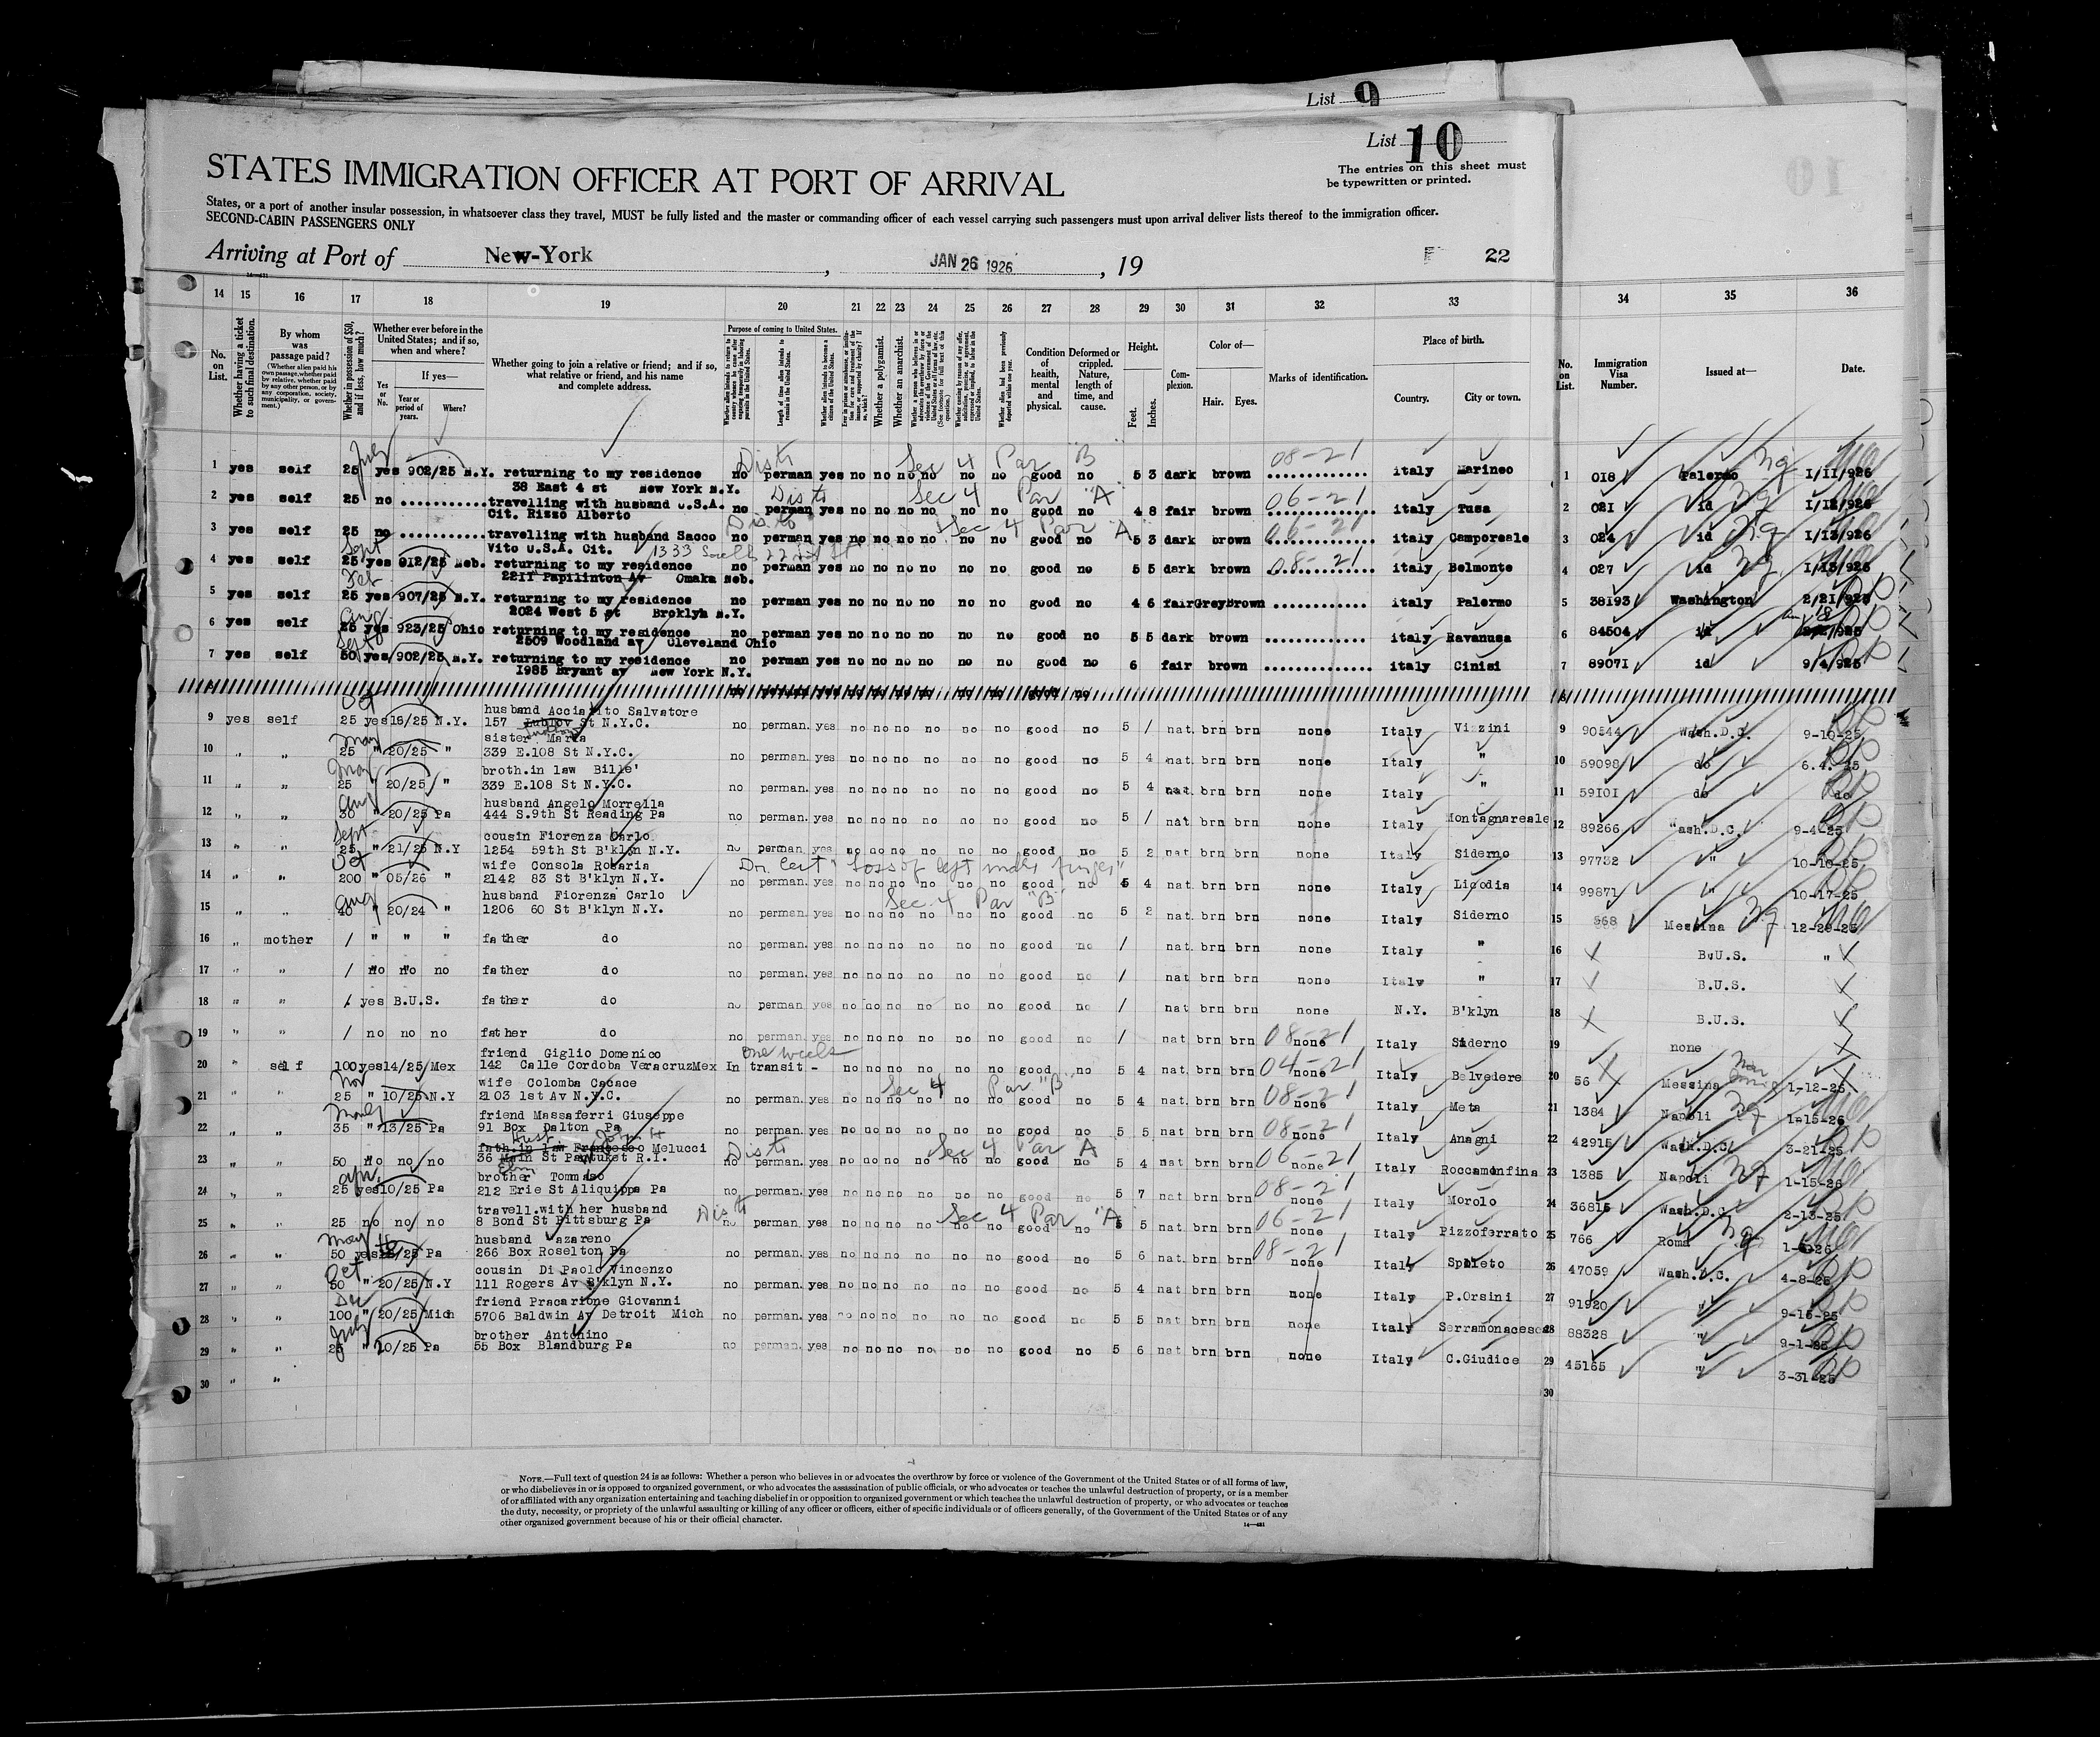 List 9
List 10
The entries on this sheet must
be typewritten or printed.
STATES IMMIGRATION OFFICER AT PORT OF ARRIVAL
States, or a port of another insular possession, in whatsoever class they travel, MUST be fully listed and the master or commanding officer of each vessel carrying such passengers must upon arrival deliver lists thereof to the immigration officer.
SECOND-CABIN PASSENGERS ONLY
Arriving at Port of New-York, JAN 26 1926, 19 22
14 15 16 17 18 19 20 21 22 23 24 25 26 27 28 29 30 31 32 33 34 35 36
No. on List.
Whether having a ticket to such final destination.
By whom was passage paid?
(Whether alien paid his own passage, whether paid by relative, whether paid by any other person, or by any corporation, society, municipality, or government.)
Whether in possession of $50, and if less, how much?
Whether ever before in the United States; and if so, when and where?
Yes or No.
If yes—
Year or period of years.
Where?
Whether going to join a relative or friend; and if so, what relative or friend, and his name and complete address.
Purpose of coming to United States.
Length of time alien intends to remain in the United States.
Whether alien intends to become a citizen of the United States.
Whether a polygamist.
Whether an anarchist.
Condition of health, mental and physical.
Deformed or crippled. Nature, length of time, and cause.
Height.
Feet. Inches.
Complexion.
Color of—
Hair. Eyes.
Marks of identification.
Place of birth.
Country. City or town.
No. on List.
Immigration Visa Number.
Issued at—
Date.
July Distr Sec 4 Par "B" 08-21
1 yes self 25 yes 902/25 N.Y. returning to my residence no perman yes no no no no no no good no 5 3 dark brown italy Marineo 1 018 Palermo 1/11/926
38 East 4 st New York N.Y.
Distr Sec 4 Par "A" 06-21
2 yes self 25 no travelling with husband U.S.A. no perman yes no no no no no no good no 4 8 fair brown italy Tusa 2 021 id 1/12/926
Cit. Rizzo Alberto
Distr Sec 4 Par "A" 06-21
3 yes self 25 no travelling with husband Sacco no perman yes no no no no no no good no 5 3 dark brown italy Camporeale 3 024 id 1/13/926
Vito U.S.A. Cit. 1333 South 22nd St
Sept 08-21
4 yes self 25 yes 912/25 Neb. returning to my residence no perman yes no no no no no no good no 5 5 dark brown italy Belmonte 4 027 id 1/13/926
2211 Papilinton Av Omaka Neb.
Feb
5 yes self 25 yes 907/25 N.Y. returning to my residence no perman yes no no no no no no good no 4 6 fair Grey brown italy Palermo 5 38193 Washington 2/21/925
2024 West 5 st Broklyn N.Y.
Aug
6 yes self 25 yes 923/25 Ohio returning to my residence no perman yes no no no no no no good no 5 5 dark brown italy Ravanusa 6 84504 id
2509 Woodland av Cleveland Ohio
Sept
7 yes self 50 yes 902/25 N.Y. returning to my residence no perman yes no no no no no no good no 6 fair brown italy Cinisi 7 89071 id 9/4/925
1985 Bryant av New York N.Y.
Oct husband Acciarito Salvatore
9 yes self 25 yes 16/25 N.Y. 157 St N.Y.C. no perman. yes no no no no no no good no 5 / nat. brn brn none Italy Vizzini 9 90544 Wash.D.C. 9-10-25
May sister Maria
10 " " 25 " 20/25 " 339 E.108 St N.Y.C. no perman. yes no no no no no no good no 5 4 nat. brn brn none Italy " 10 59098 do 6.4.25
May broth.in law Bille'
11 " " 25 " 20/25 " 339 E.108 St N.Y.C. no perman. yes no no no no no no good no 5 4 nat. brn brn none Italy " 11 59101 do do
Aug husband Angelo Morrella
12 " " 30 " 20/25 Pa 444 S.9th St Reading Pa no perman. yes no no no no no no good no 5 / nat brn brn none Italy Montagnareale 12 89266 Wash.D.C. 9-4-25
Sept cousin Fiorenza Carlo
13 " " 25 " 21/25 N.Y 1254 59th St B'klyn N.Y. no perman. yes no no no no no no good no 5 2 nat brn brn none Italy Siderno 13 97732 " 10-10-25
Oct wife Consola Rosaria Dr. Cert "Loss of left index finger"
14 " " 200 " 05/26 " 2142 83 St B'klyn N.Y. no perman. yes no no no no no no good no 5 4 nat. brn brn none Italy Licodia 14 99871 " 10-17-25
Aug husband Fiorenza Carlo Sec 4 Par "B"
15 " " 40 " 20/24 " 1206 60 St B'klyn N.Y. no perman. yes no no no no no no good no 5 2 nat. brn brn none Italy Siderno 15 568 Messina 12-29-25
16 " mother / " " " father do no perman. yes no no no no no no good no / nat. brn brn none Italy " 16 B.U.S. "
17 " " / no no no father do no perman. yes no no no no no no good no / nat brn brn none Italy " 17 B.U.S.
18 " " / yes B.U.S. father do no perman. yes no no no no no no good no / nat brn brn none N.Y. B'klyn 18 B.U.S.
19 " " / no no no father do no perman. yes no no no no no no good no / nat. brn brn none Italy Siderno 19 none
friend Giglio Domenico one week 08-21
20 " self 100 yes 14/25 Mex 142 Calle Cordoba Veracruz Mex In transit - no no no no no no good no 5 4 nat. brn brn none 04-21 Italy Belvedere 20 56 Messina 1-12-26
Nov wife Colomba Cacace Sec 4 Par "B" 08-21
21 " " 25 " 10/25 N.Y 2103 1st Av N.Y.C. no perman. yes no no no no no no good no 5 4 nat. brn brn none Italy Meta 21 1384 Napoli 1-15-26
March friend Massaferri Giuseppe 08-21
22 " " 35 " 13/25 Pa 91 Box Dalton Pa no perman. yes no no no no no no good no 5 5 nat. brn brn none Italy Anagni 22 42915 Wash.D.C. 3-21-25
Hust. fath.in law Francesco Melucci Distr Sec 4 Par A 06-21
23 " " 50 no no no 36 Main St Pawtuket R.I. Elm no perman. yes no no no no no no good no 5 4 nat brn brn none Italy Roccamonfina 23 1385 Napoli 1-15-26
Apr. brother Tommaso 08-21
24 " " 25 yes 10/25 Pa 212 Erie St Aliquippa Pa no perman. yes no no no no no no good no 5 7 nat brn brn none Italy Morolo 24 36815 Wash.D.C. 2-13-25
travell.with her husband Distr Sec 4 Par "A" 06-21
25 " " 25 no no no 8 Bond St Pittsburg Pa no perman. yes no no no no no no good no 5 5 nat. brn brn none Italy Pizzoferrato 25 766 Roma
May husband Nazareno 08-21
26 " " 50 yes /25 Pa 266 Box Roselton Pa no perman. yes no no no no no no good no 5 6 nat. brn brn none Italy Spoleto 26 47059 Wash.D.C. 4-8-25
Oct cousin Di Paolo Vincenzo
27 " " 50 " 20/25 N.Y 111 Rogers Av B'klyn N.Y. no perman. yes no no no no no no good no 5 4 nat. brn brn none Italy P.Orsini 27 91920 " 9-15-25
Dec friend Pracarione Giovanni
28 " " 100 " 20/25 Mich 5706 Baldwin Av Detroit Mich no perman. yes no no no no no no good no 5 5 nat brn brn none Italy Serramonacesca 28 88328 " 9-1-25
July brother Antonino
29 " " 25 " 20/25 Pa 55 Box Blandburg Pa no perman. yes no no no no no no good no 5 6 nat brn brn none Italy C.Giudice 29 45165 " 3-31-25
30 " " 30
NOTE.—Full text of question 24 is as follows: Whether a person who believes in or advocates the overthrow by force or violence of the Government of the United States or of all forms of law,
or who disbelieves in or is opposed to organized government, or who advocates the assassination of public officials, or who advocates or teaches the unlawful destruction of property, or is a member
of or affiliated with any organization entertaining and teaching disbelief in or opposition to organized government or which teaches the unlawful destruction of property, or who advocates or teaches
the duty, necessity, or propriety of the unlawful assaulting or killing of any officer or officers, either of specific individuals or of officers generally, of the Government of the United States or of any
other organized government because of his or their official character.